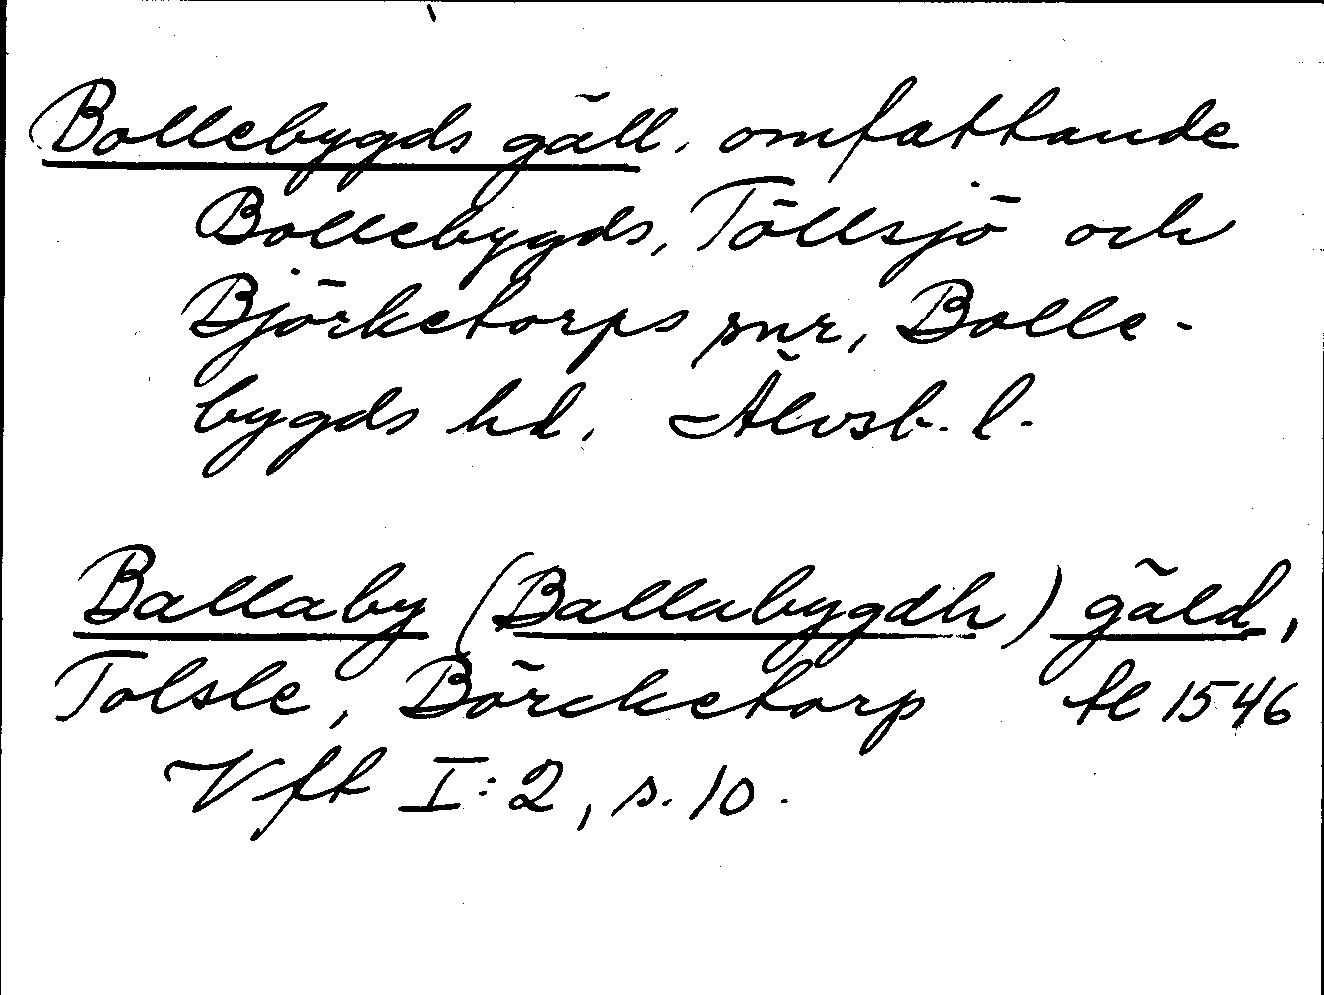 Bollebygds gäll, omfattande
Bollebygds, Töllsjö och
Björketorps snr, Bolle-
bygds hd. Älvsb. l.
Ballaby (Ballabygdh) gäld,
Tolsle, Börcketorp tl 1546
Vft I:2, s. 10.